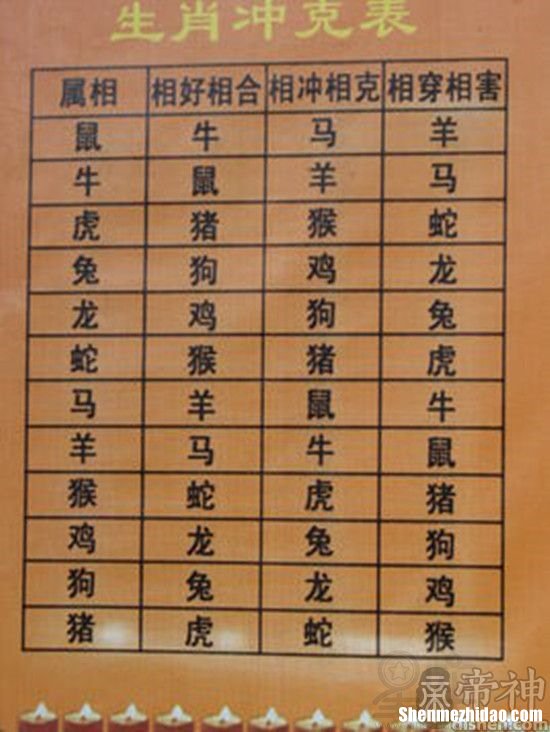 生肖冲克表
属相 相好相合 相冲相克 相穿相害
鼠 牛 马 羊
牛 鼠 羊 马
虎 猪 猴 蛇
兔 狗 鸡 龙
龙 鸡 狗 兔
蛇 猴 猪 虎
马 羊 鼠 牛
羊 马 牛 鼠
猴 蛇 虎 猪
鸡 龙 兔 狗
狗 兔 龙 鸡
猪 虎 蛇 猴
帝神
Shenmezhidao.com